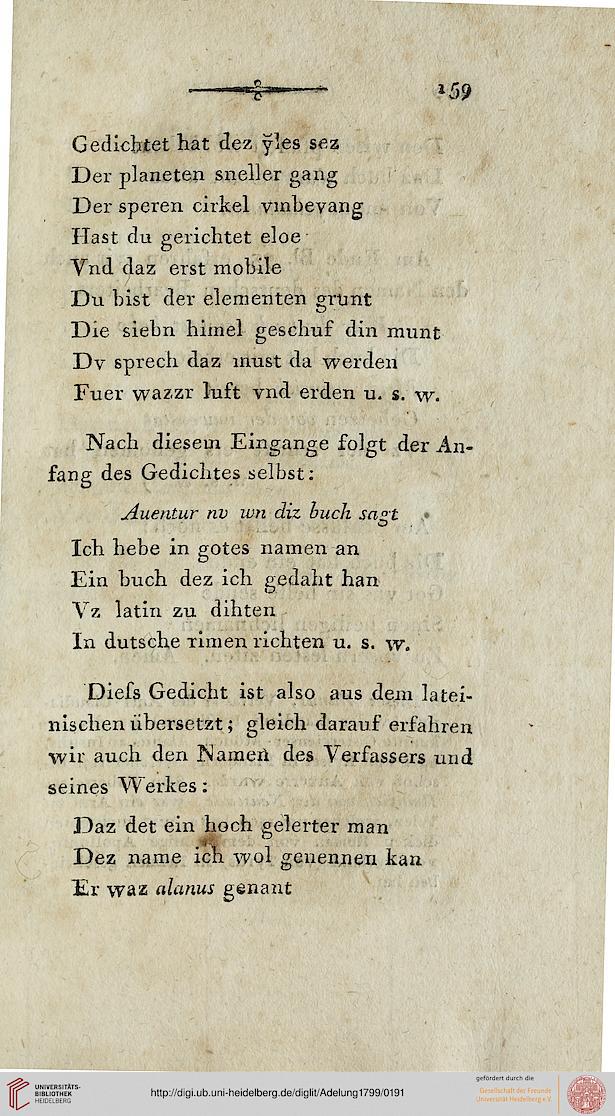 159
Gedichtet hat dez ÿles sez
Der planeten sneller gang
Der speren cirkel vmbevang
Hast du gerichtet eloe
Vnd daz erst mobile
Du bist der elementen grunt
Die siebn himel geschuf din munt
Dv sprech daz must da werden
Fuer wazzr luft vnd erden u. s. w.
Nach diesem Eingange folgt der An-
fang des Gedichtes selbst:
Auentur nv wn diz buch sagt
Ich hebe in gotes namen an
Ein buch dez ich gedaht han
Vz latin zu dihten
In dutsche rimen richten u. s. w.
Diefs Gedicht ist also aus dem latei-
nischen übersetzt; gleich darauf erfahren
wir auch den Namen des Verfassers und
seines Werkes:
Daz det ein hoch gelerter man
Dez name ich wol genennen kan
Er waz alanus genant
UNIVERSITÄTS-
BIBLIOTHEK
HEIDELBERG
http://digi.ub.uni-heidelberg.de/diglit/Adelung1799/0191
gefördert durch die
Gesellschaft der Freunde
Universität Heidelberg e.V.